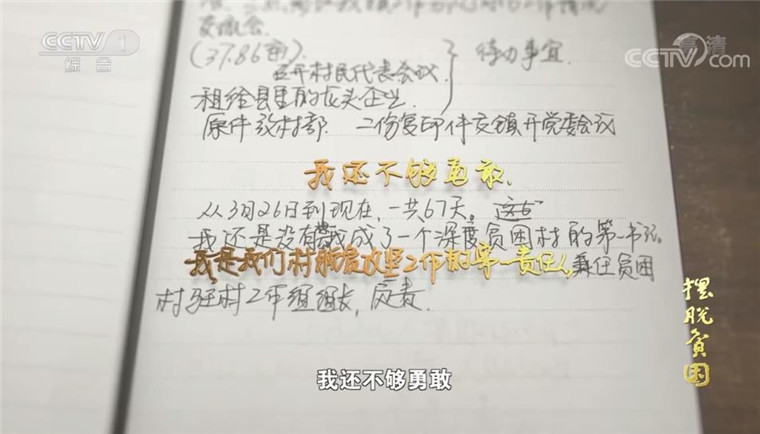 CCTV 1
综合
高清
CCTV.com
(37.86亩).
召开村民代表会议.
待办事宜.
租给县里的龙头企业.
原件放村部. 二份复印件交镇开党委会议
我还不够勇敢.
从3月26日到现在，一共67天。
我还是没有 我成了一个深度贫困村的第一书记.
我是我们村脱贫攻坚工作的第一责任人,兼任贫困
村驻村工作组组长,
摆脱贫困
我还不够勇敢